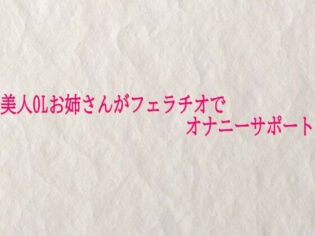 美人OLお姉さんがフェラチオで
オナニーサポート